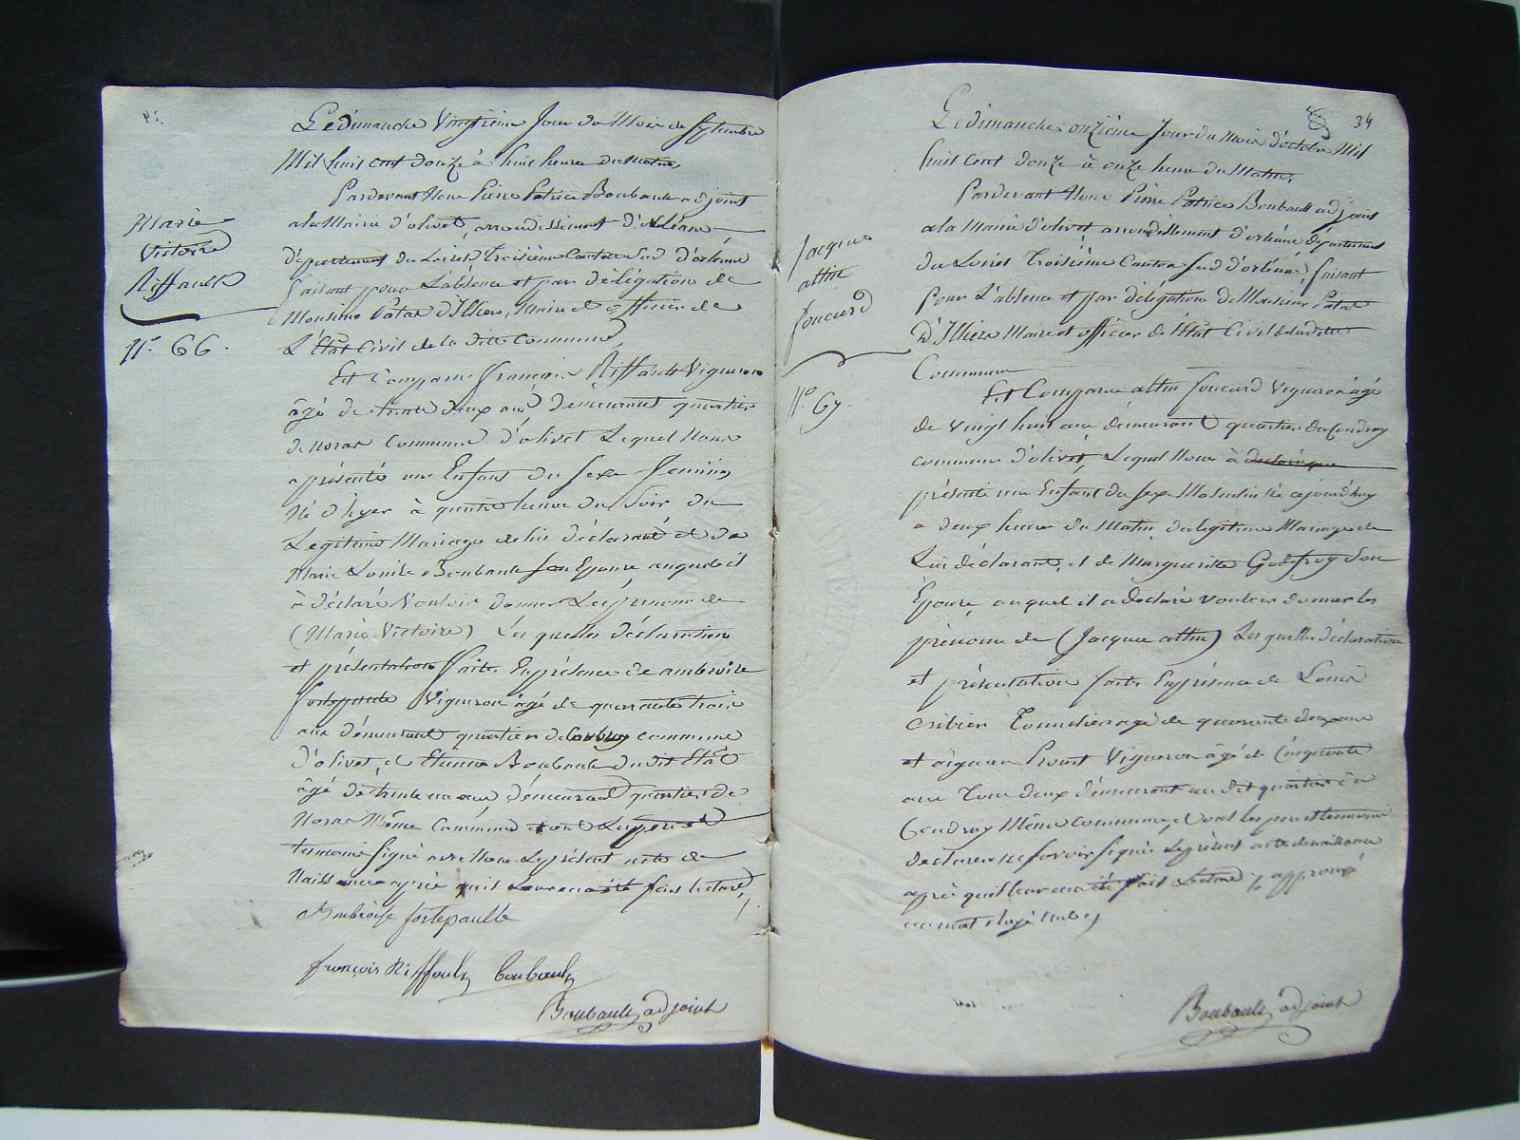 Marie
Victoire
Riffault
N.° 66.
Le dimanche Vingtieme Jour du Mois de Septembre
Mil huit cent douze à huit heure du Matin,
Pardevant Nous Pierre Patrice Boubault adjoint
a la Mairie d'olivet, arrondissement d'orléans
département du Loiret, Troisième Canton Sud d'orléans
faisant pour L'absence et par délégation de
Monsieur Patas d'Illiers, Maire et officier de
L'Etat Civil de la ditte Commune
Est Comparu françois Riffault Vigneron
âgé de trente deux ans demeurant quartier
de Noras Commune d'olivet Lequel Nous
a présenté un Enfant du Sexe Feminin
Né d'hyer à quatre heure du Soir du
Legitime Mariage de lui déclarant et de
Marie Louise Boubault Son Epouse auquel il
à déclaré Vouloir donner Les prénoms de
(Marie Victoire) Les quelles déclaration
et présentation faite En présence de ambroise
fortepaulle Vigneron âgé de quarante trois
ans demeurant quartier de commune
d'olivet, et Etienne Boubault du dit Etat
âgé de trente un ans demeurant quartier de
Noras Même Commune et ont Les pere et
temoins Signé avec Nous Le présent acte de
Naissance après qu'il Leur en a été fait lecture,
Ambroise fortepaulle
françois Riffault boubault
Boubault adjoint
34
Jacques
altin
foucard
N.° 67.
Le dimanche onzième Jour du Mois d'octobre Mil
huit Cent douze à onze heure du Matin,
Pardevant Nous Pierre Patrice Boubault adjoint
a la Mairie d'olivet arrondissement d'orléans département
du Loiret Troisième Canton Sud d'orléans, faisant
pour L'absence et par délégation de Monsieur Patas
d'Illiers Maire et officier de l'Etat Civil de la ditte
Commune
Est Comparu altin foucard Vigneron âgé
de Vingt huit ans demeurant quartier du Coudray
commune d'olivet Lequel Nous à
présenté un Enfant du Sexe Masculin Né cejourd'huy
a deux heure du Matin du legitime Mariage de
Lui déclarant, et de Margueritte Godefroy Son
Epouse, auquel il a déclaré vouloir donner les
prénoms de (Jacques altin) Les quelles déclaration
et présentation faite En présence de Louis
Cribier Tonnelier agé de quarante deux ans
et Prout Vigneron âgé de Cinquante
ans Tous deux demeurant au dit quartier du
Coudray Même commune, et ont les pere et temoins
declaré ne Savoir Signer Le présent acte de naissance
après qu'il leur en a été fait Lecture, approuvé
un mot rayé Nul,
Boubault adjoint